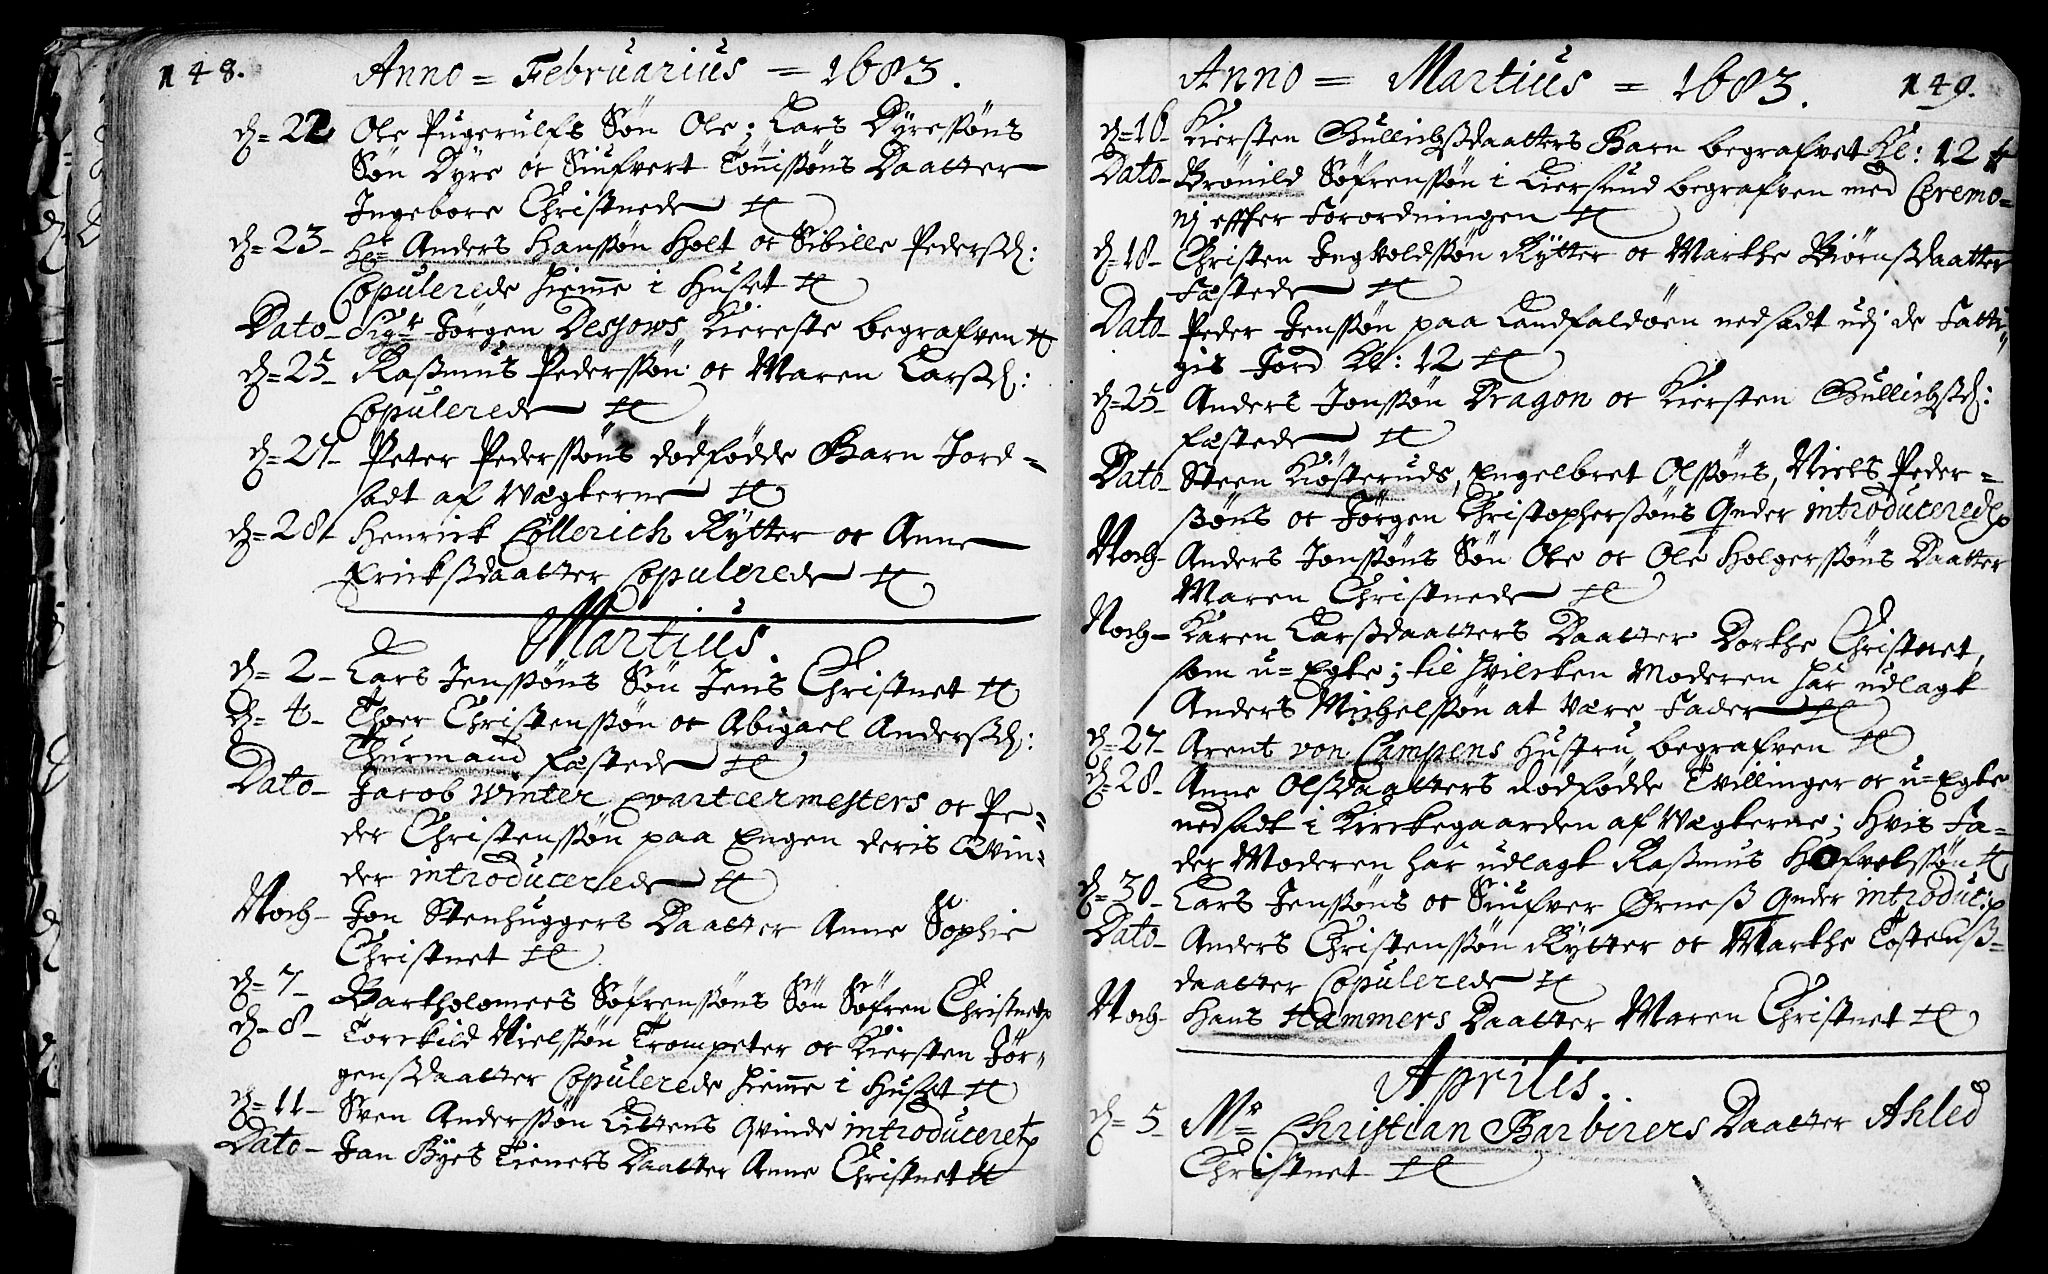 148. Anno = Februarius = 1683.
d= 22 Ole Pugerulfs Søn Ole; Lars Dyressøns
Søn Dyre oc Siufvert Tönissøns Daatter
Ingebore Christnede
d= 23- Hr Anders Hanssøn Holt oc Sibille Pedersd:
Copulerede hiemme i Huset
Dato- Sigr Jörgen Desjows Kiereste begrafven
d= 25- Rasmus Pederssøn oc Maren Larsd:
Copulerede
d= 27- Peter Pederssøns dödfödde Barn Jord-
sadt af Wægterne
d= 28- Henrick Cöllerich Rytter oc Anne
Ericksdaatter Copulerede
Martius.
d= 2- Lars Jenssøns Søn Jens Christnet
d= 4- Thoer Christenssøn oc Abigael Andersd:
Thurmand fæstede
Dato- Jacob Winter Qvarteermesters oc Pe-
der Christenssøn paa Engen deris Qvin-
der introducerede
Noch- Jon Stenhuggers Daatter Anne Sophie
Christnet
d= 7- Bartholomees Söfrenssøns Søn Söfren Christnet
d= 8- Torckild Nielssøn Trompeter oc Kiersten Jör-
gensdaatter Copulerede hiemme i Huset
d= 11- Sven Anderssøn Littens Qvinde introduceret
Dato- Jan Byes Tieners Daatter Anne Christnet
Anno = Martius = 1683. 149.
d= 16- Kiersten Gullichsdaatters Barn begrafvet Kl: 12
Dato- Brönild Söfrenssøn i Liersund begrafven med Ceremo-
nj effter Forordningen
d= 18- Christen Ingvoldssøn Rytter oc Marthe Biörnsdaatter
Fæstede
Dato- Peder Jenssøn paa Landfaldöen nedsadt udj de Fatti-
gis Jord Kl: 12
d= 25- Anders Jonssøn Dragon oc Kiersten Gullichsd:
fæstede
Dato- Steen Kiösteruds, Engelbret Olssøns, Niels Peder-
søns oc Jörgen Christopherssøns Qvinder introducerede
Noch- Anders Jonssøns Søn Ole oc Ole Holgerssøns Daatter
Maren Christnede
Noch- Karen Larsdaatters Daatter Dorthe Christnet,
som u=Egte; til hvilcken Moderen har udlagt
Anders Michelssøn at være Fader
d= 27- Arent von Campens Hustru begrafven
d= 28- Anne Olsdaatters dödfödde Tvillinger oc u=Egte
nedsadt i Kirckegaarden af Wægterne; Hvis Fa-
der Moderen har udlagt Rasmus
d= 30- Lars Jenssøns oc Siufver Örnes Qvinder introduc:
Dato- Anders Christenssøn Rytter oc Marthe Tostens-
daatter Copulerede
Noch- Hans Hammers Daatter Maren Christnet
Aprilis.
d= 5- Mr Christian Barbirers Daatter Ahled
Christnet